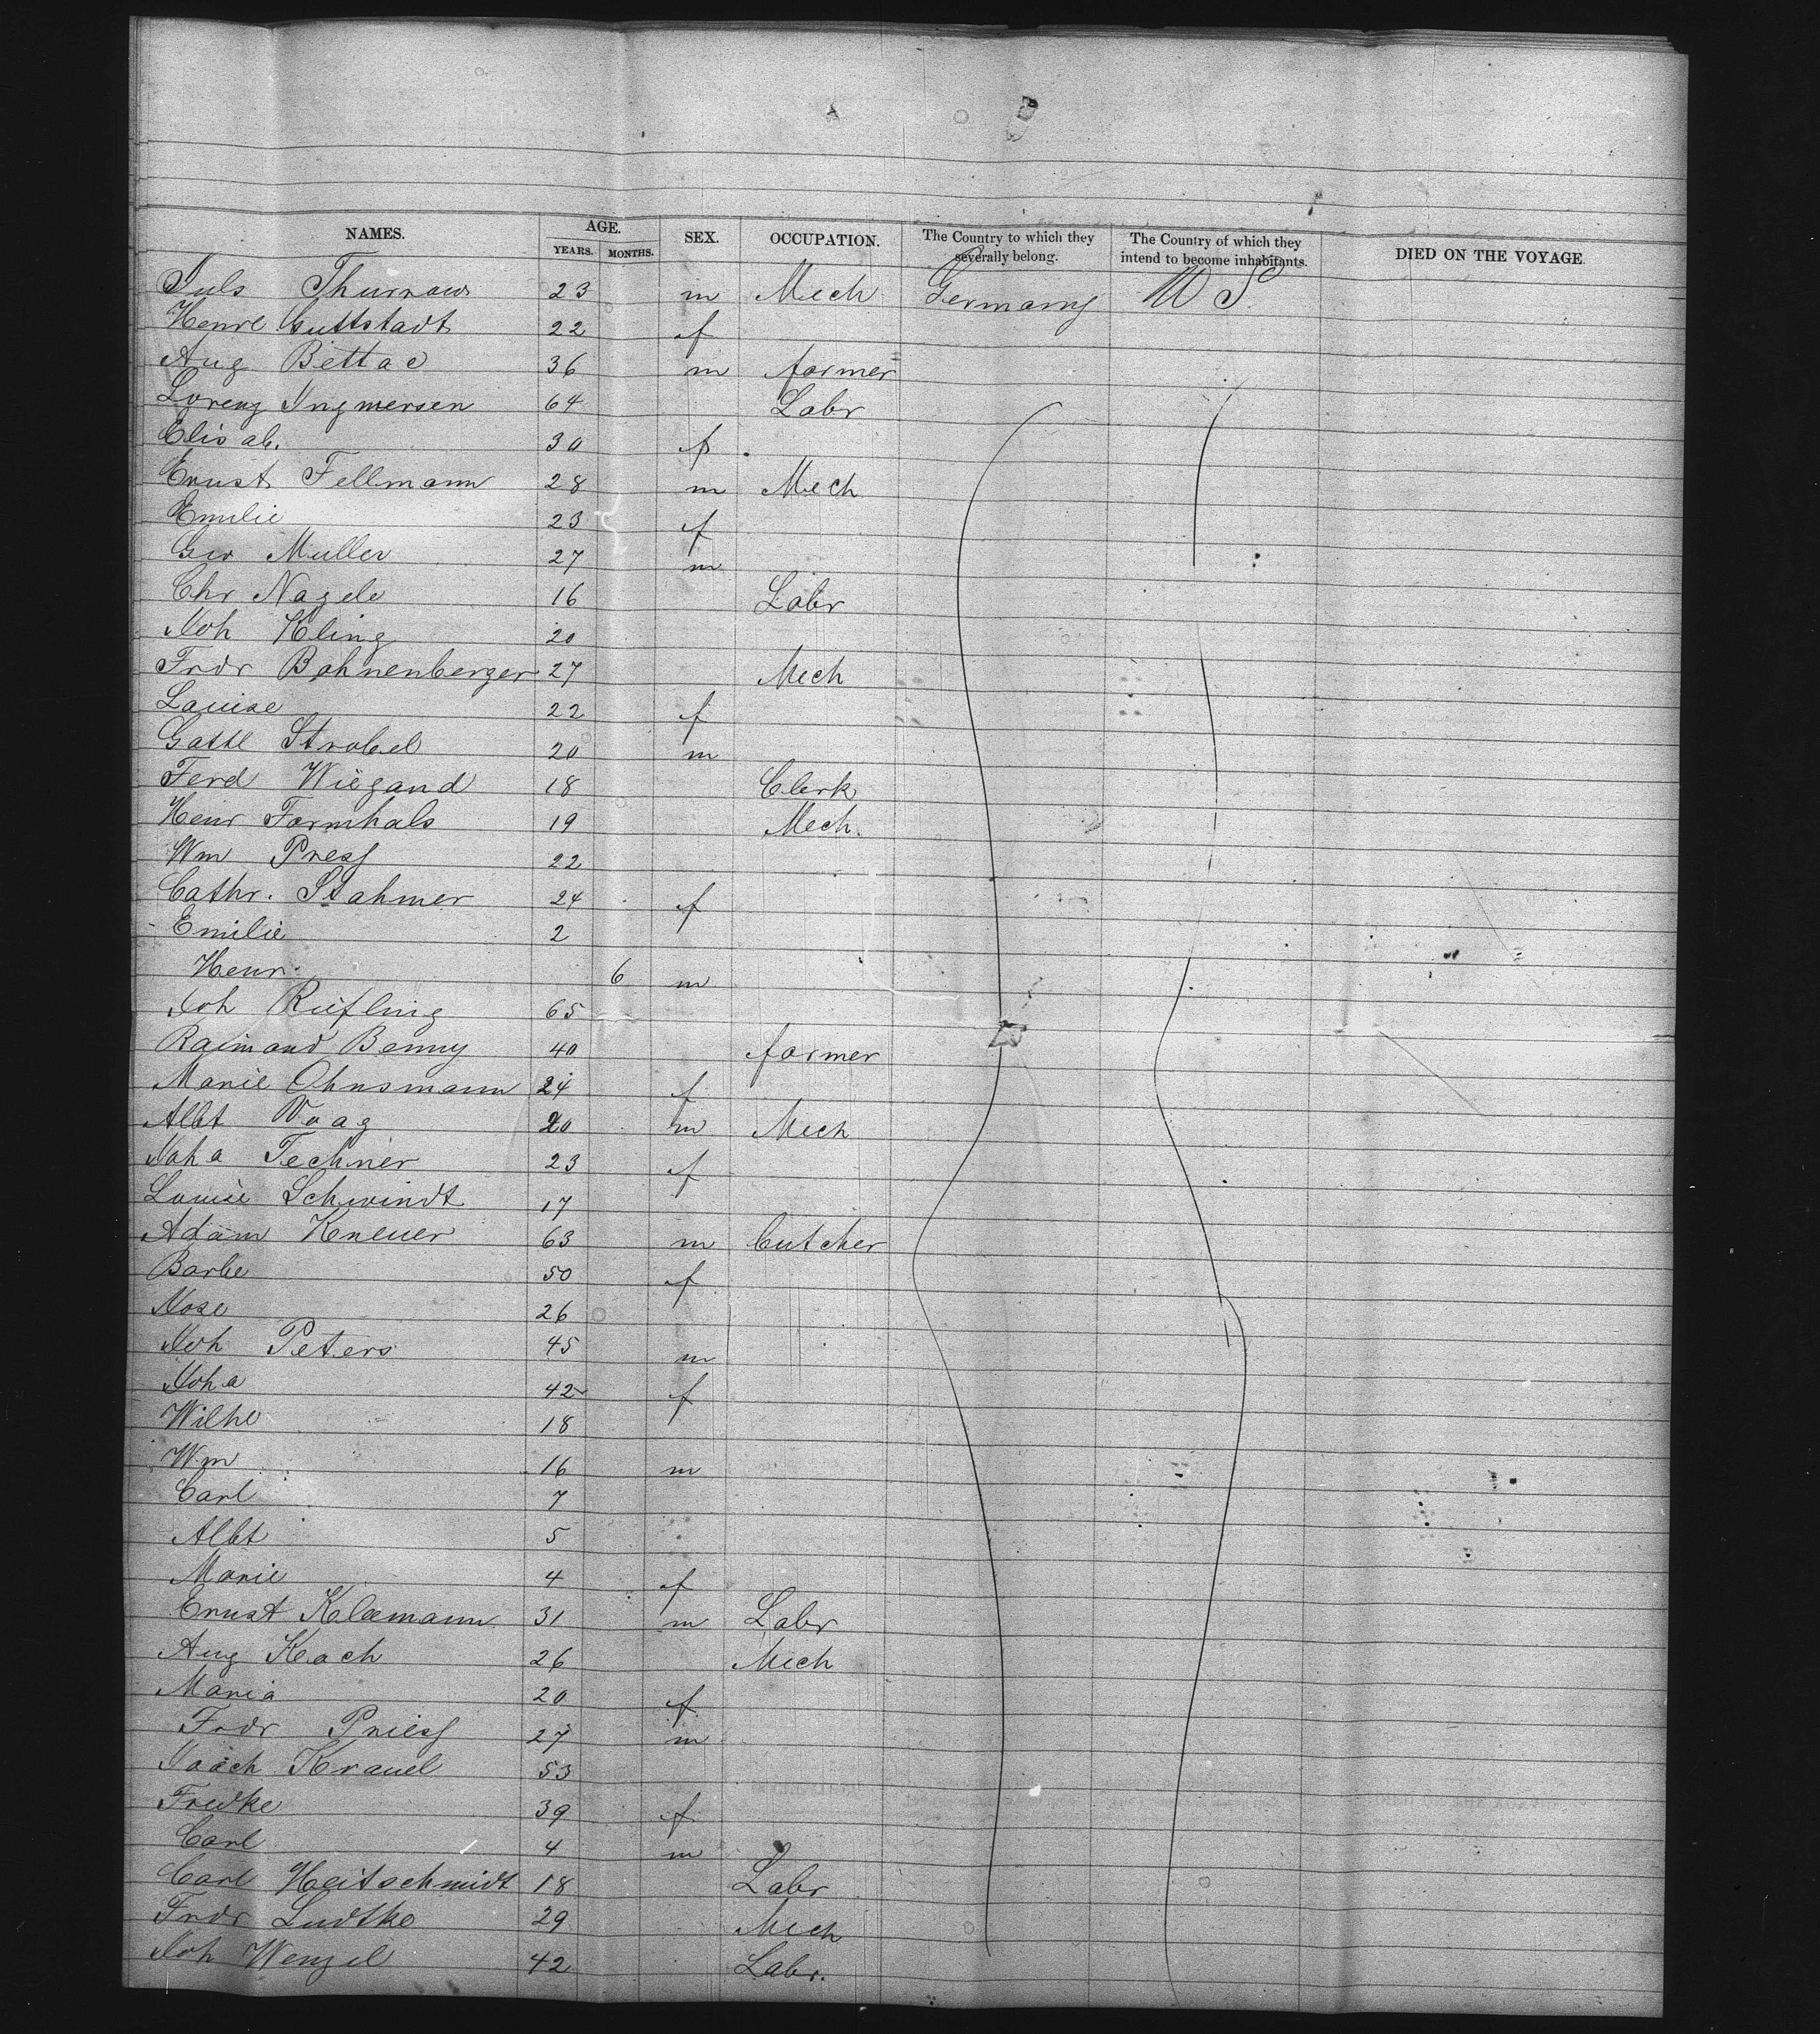 NAMES. AGE. SEX. OCCUPATION. The Country to which they severally belong. The Country of which they intend to become inhabitants. DIED ON THE VOYAGE.
YEARS. MONTHS.
Juls Thurnow 23 m Mech Germany U S
Henre Guttstadt 22 f
Aug Bettac 36 m farmer
Lorenz Ingwersen 64 Labr
Elisab. 30 f
Ernst Fellmann 28 m Mech
Emilie 23 f
Geo Muller 27 m
Chr Nagele 16 Labr
Joh Kling 20
Fredr Bohnenberger 27 Mech
Louise 22 f
Gottl Strobel 20 m
Ferd Wiegand 18 Clerk
Henr Formhals 19 Mech.
Wm Press 22
Cathr. Stahmer 24 f
Emilie 2
Henr. 6 m
Joh Riefling 65
Raimond Benny 40 farmer
Marie Ohnsmann 24 f
Albt Voag 20 m Mech
Joha Techner 23 f
Louise Schwindt 17
Adam Kneuer 63 m butcher
Barbe 50 f
Rose 26
Joh Peters 45 m
Joha 42 f
Wilhe 18
Wm 16 m
Carl 7
Albt 5
Marie 4 f
Ernst Kleemann 31 m Labr
Aug Koch 26 Mech
Maria 20 f
Fredr Priess 27 m
Joach Krauel 53
Fredke 39 f
Carl 4 m
Carl Heitschmidt 18 Labr
Fredr Ludtke 29 Mech
Joh Wenzel 42 Labr.